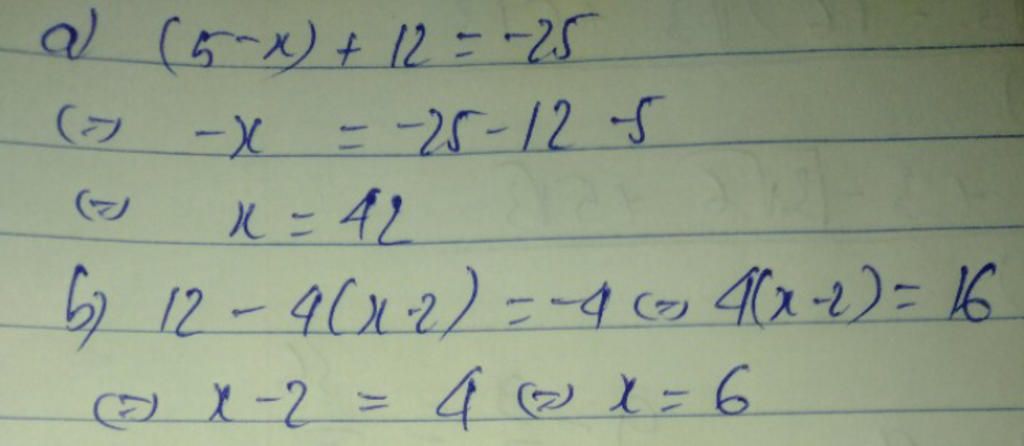 a) (5-x) + 12 = -25
(=) -x = -25-12 -5
(=) x = 42
b) 12 - 4(x-2) = -4 (=) 4(x-2) = 16
(=) x-2 = 4 (=) x = 6